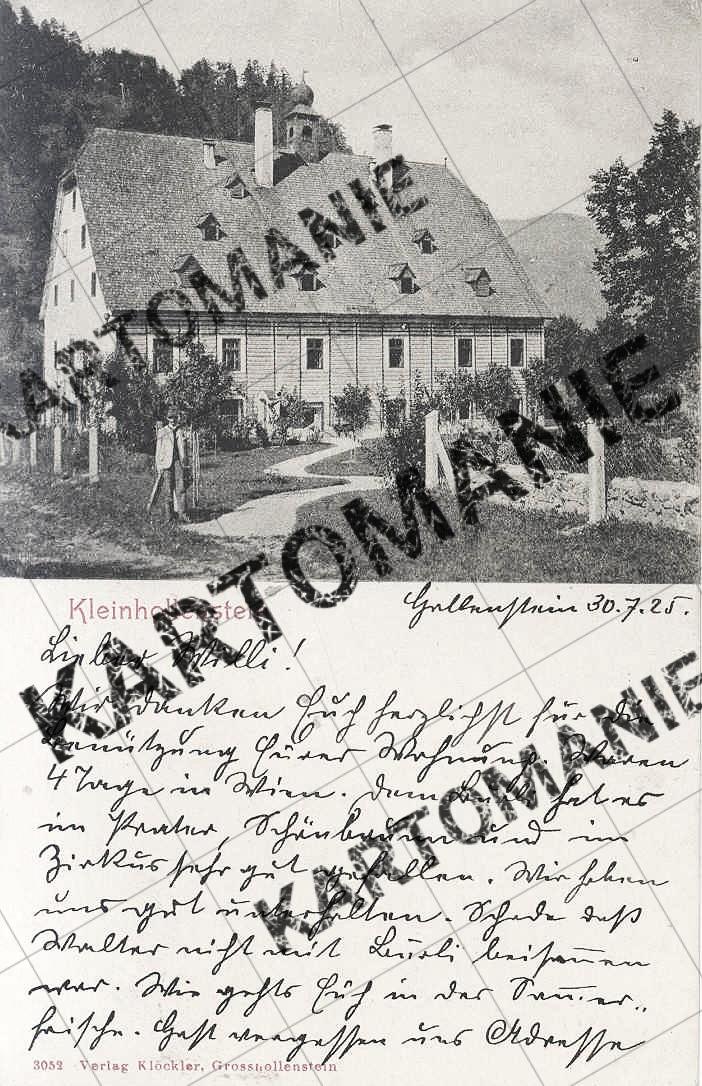 KARTOMANIE
KARTOMANIE
KARTOMANIE
KARTOMANIE
Kleinhollenstein
Hollenstein 30.7.25.
Lieber Willi!
Wir danken Euch herzlichst für die
Benützung Eurer Wohnung. Waren
4 Tage in Wien. Dem Burli hat es
im Prater, Schönbrunn und im
Zirkus sehr gut gefallen. Wir haben
uns gut unterhalten. Schade daß
Walter nicht mit Burli beisammen
war. Wie gehts Euch in der Sommer-
frische. Hast vergessen uns Adresse
3052 Verlag Klöckler, Grosshollenstein